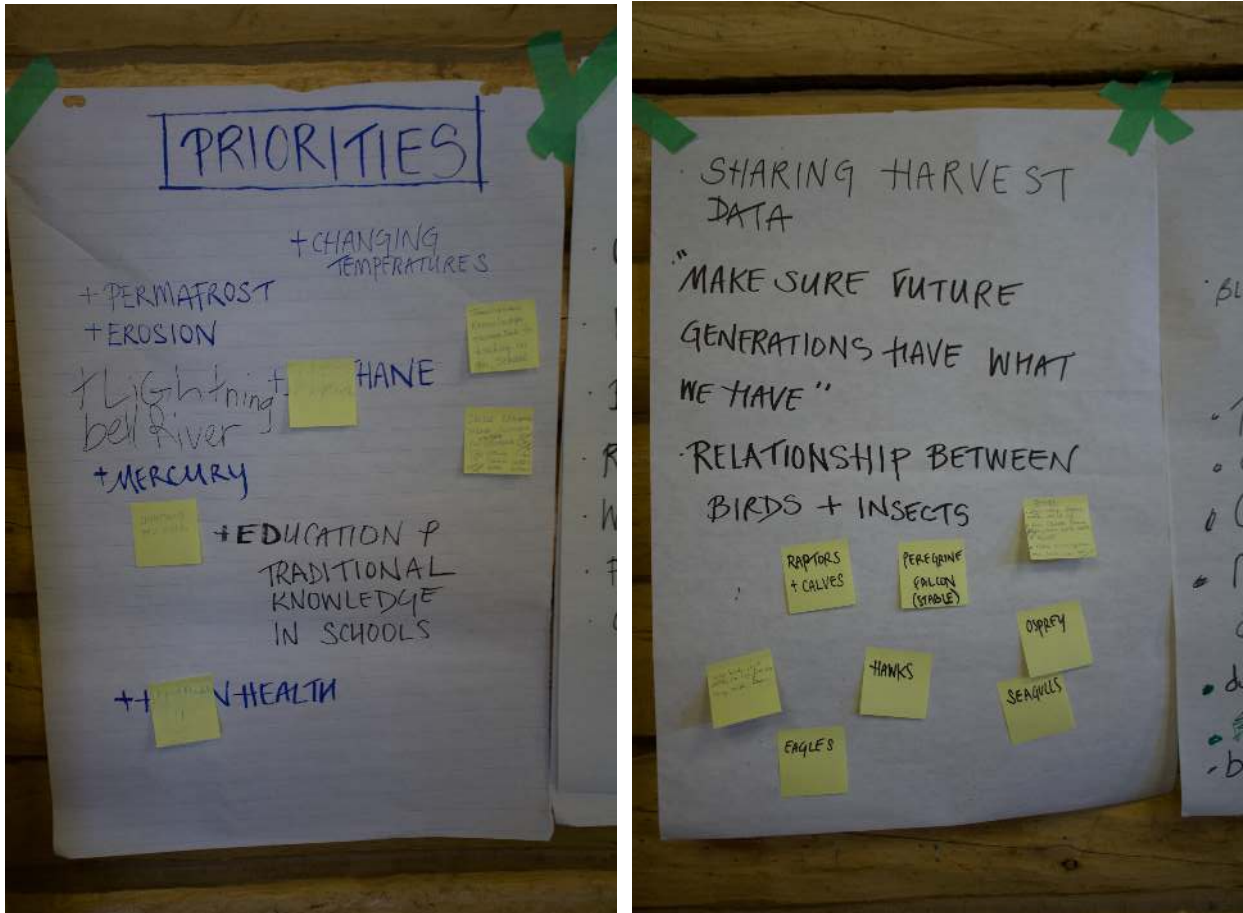 PRIORITIES
+ CHANGING
TEMPERATURES
+ PERMAFROST
+ EROSION
+ LiGhtning
bell River
+ HANE
+ MERCURY
+ EDUCATION &
TRADITIONAL
KNOWLEDGE
IN SCHOOLS
++ H N HEALTH
· SHARING HARVEST
DATA
· "MAKE SURE FUTURE
GENERATIONS HAVE WHAT
WE HAVE"
· RELATIONSHIP BETWEEN
BIRDS + INSECTS
RAPTORS
+ CALVES
PEREGRINE
FALCON
(STABLE)
OSPREY
HAWKS
SEAGULLS
EAGLES